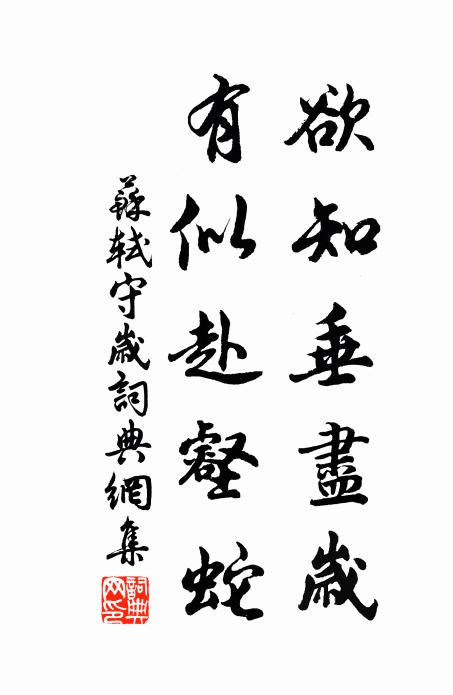 欲知垂盡歲
有似赴壑蛇
蘇軾守歲詞典網集
詞典網印